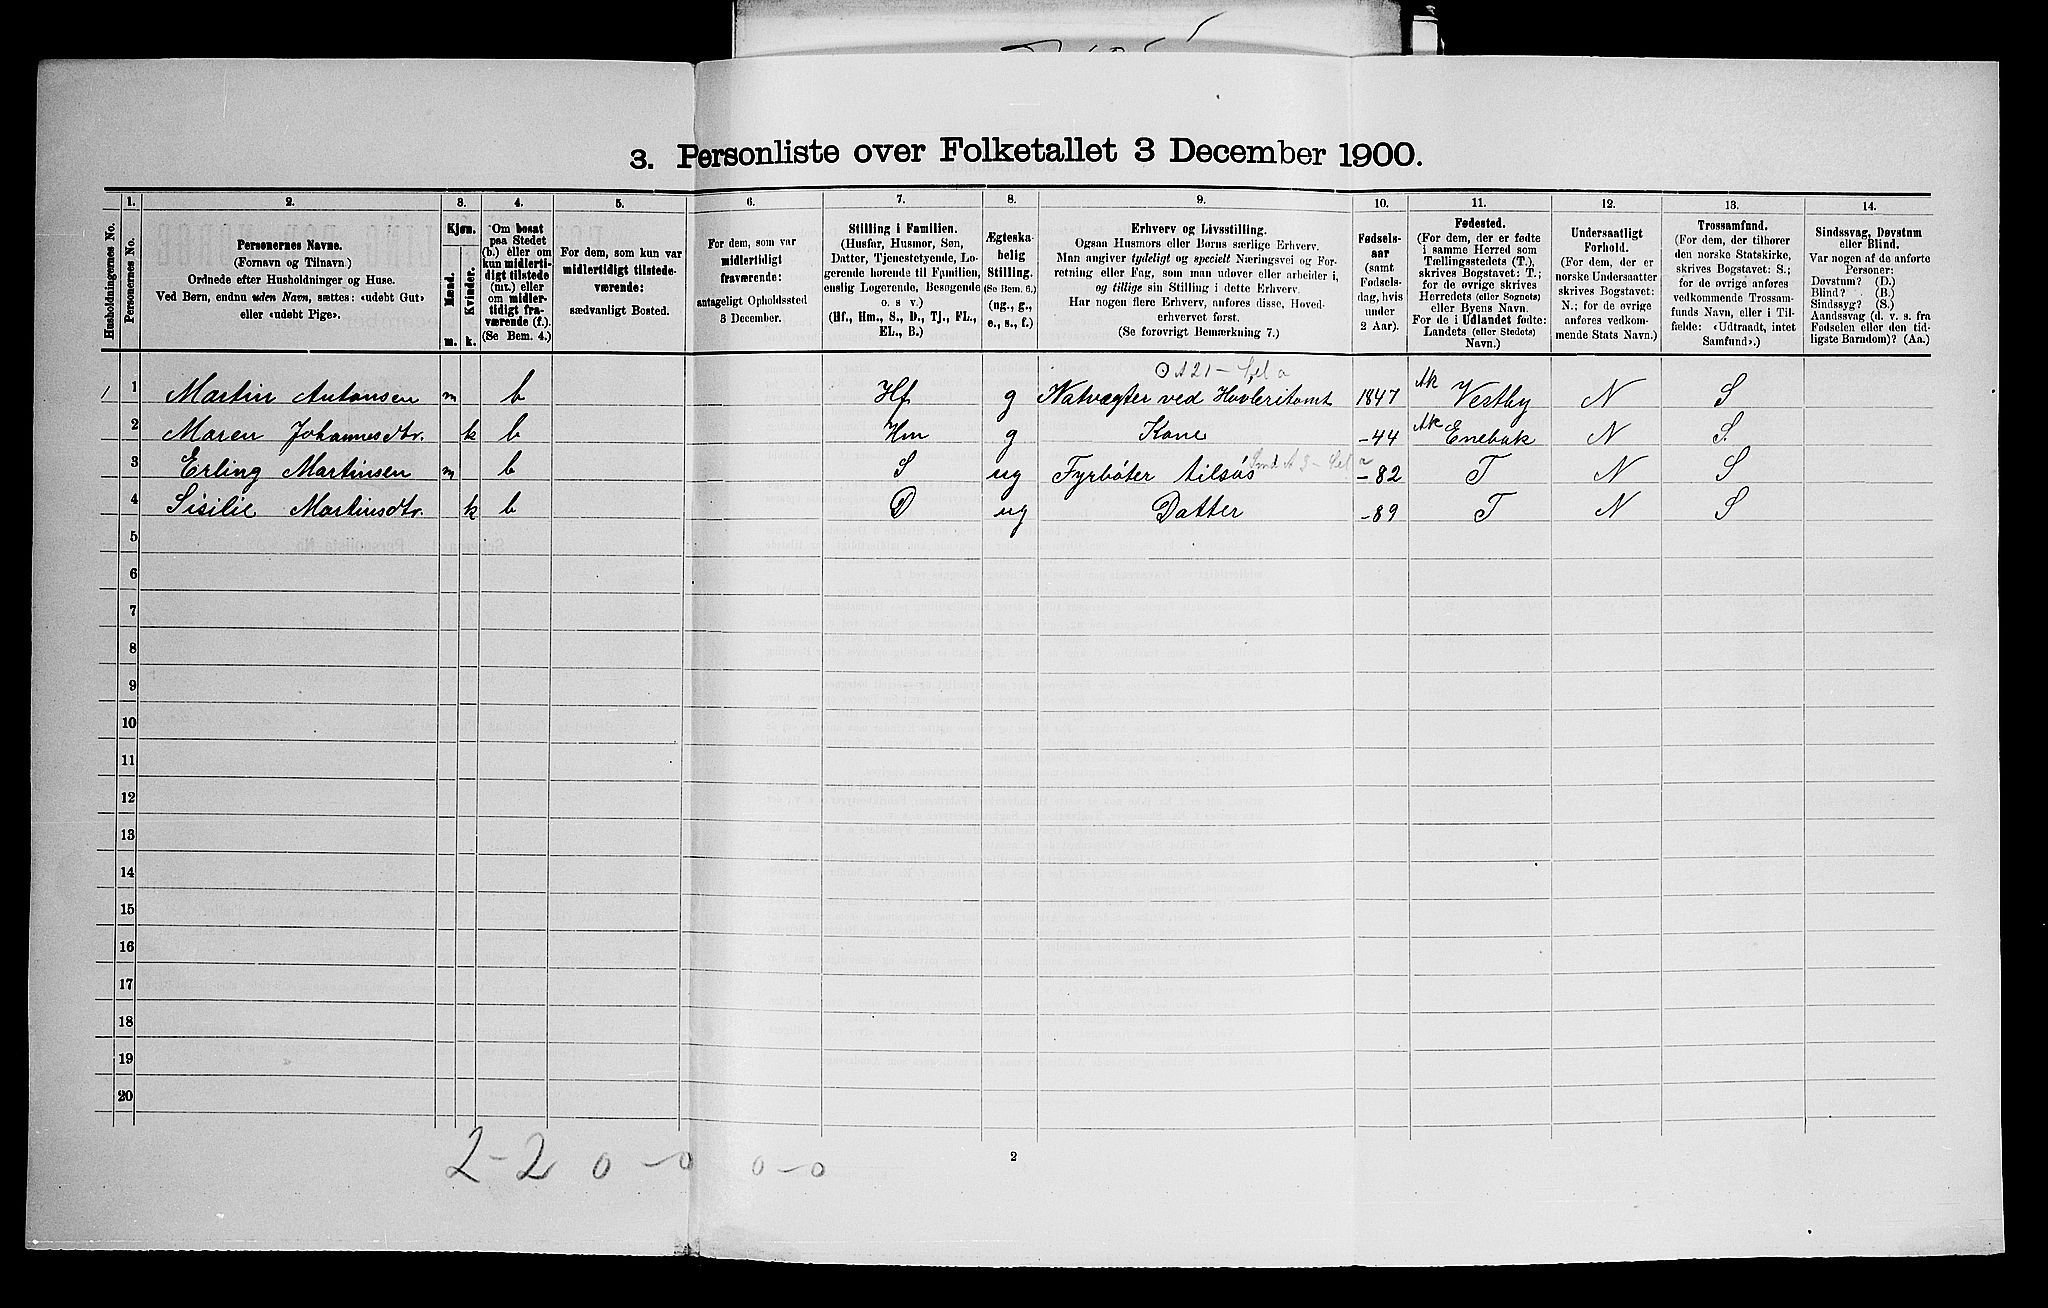 3. Personliste over Folketallet 3 December 1900.
1. 2. 3. 4. 5. 6. 7. 8. 9. 10. 11. 12. 13. 14.
Husholdningernes No.
Personernes No.
Personernes Navne.
(Fornavn og Tilnavn)
Ordnede efter Husholdninger og Huse.
Ved Børn, endnu uden Navn, sættes: «udøbt Gut»
eller «udøbt Pige».
Kjøn.
Mænd. Kvinder.
m. k.
Om bosat
paa Stedet
(b.) eller om
kun midlerti-
digt tilstede
(mt.) eller
om midler-
tidigt fra-
værende (f.)
(Se Bem. 4.)
For dem, som kun var
midlertidigt tilstede-
værende:
sædvanligt Bosted.
For dem, som var
midlertidigt
fraværende:
antageligt Opholdssted
3 December.
Stilling i Familien.
(Husfar, Husmor, Søn,
Datter, Tjenestetyende, Lo-
gerende hørende til Familien,
enslig Logerende, Besøgende
o. s. v.)
(Hf., Hm., S., D., Tj., FL.,
EL., B.)
Ægteska-
belig
Stilling.
(Se Bem. 6.)
(ug., g.,
e., s., f.)
Erhverv og Livsstilling.
Ogsaa Husmors eller Børns særlige Erhverv.
Man angiver tydeligt og specielt Næringsvei og For-
retning eller Fag, som man udøver eller arbeider i,
og tillige sin Stilling i dette Erhverv.
Har nogen flere Erhverv, anføres disse, Hoved-
erhvervet først.
(Se forøvrigt Bemærkning 7.)
Fødsels-
aar
(samt
Fødsels-
dag, hvis
under
2 Aar).
Fødested.
(For dem, der er fødte
i samme Herred som
Tællingsstedets (T.),
skrives Bogstavet: T.;
for de øvrige skrives
Herredets (eller Sognets)
eller Byens Navn.
For de i Udlandet fødte:
Landets (eller Stedets)
Navn.)
Undersaatligt
Forhold.
(For dem, der er
norske Undersaatter
skrives Bogstavet:
N.; for de øvrige
anføres vedkom-
mende Stats Navn.)
Trossamfund.
(For dem, der tilhører
den norske Statskirke,
skrives Bogstavet: S.;
for de øvrige anføres
vedkommende Trossam-
funds Navn, eller i Til-
fælde: «Udtraadt, intet
Samfund».)
Sindssvag, Døvstum
eller Blind.
Var nogen af de anførte
Personer:
Døvstum? (D.)
Blind? (B.)
Sindssyg? (S.)
Aandssvag (d. v. s. fra
Fødselen eller den tid-
ligste Barndom)? (Aa.)
1 1 Martin Antonsen m b Hf g Natvægter ved Høvleritomt 1847 Ak Vestby N S
2 Maren Johannesdtr. k b Hm g Kone -44 Ak Enebak N S.
3 Erling Martinsen m b S ug Fyrbøter tilsøs -82 T N S
4 Sisilie Martinsdtr. k b D ug Datter -89 T N S
5
6
7
8
9
10
11
12
13
14
15
16
17
18
19
20
2-2 0-0 0-0
2